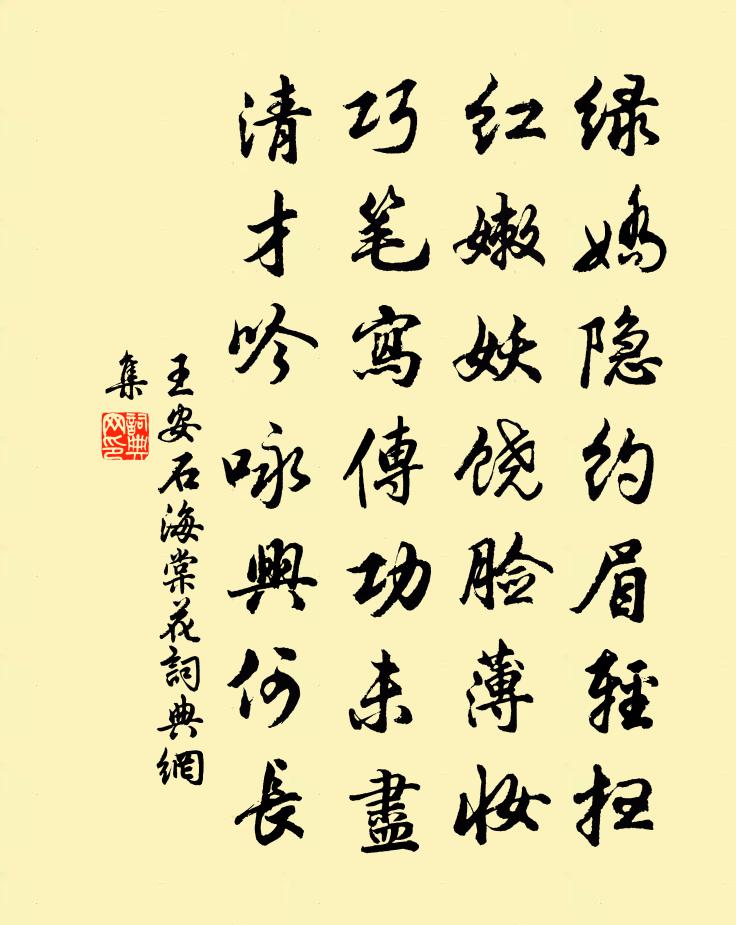 绿娇隐约眉轻扫
红嫩妖饶脸薄妆
巧笔寫傳功未盡
清才吟咏興何長
王安石海棠花詞典網
集
詞典
网印